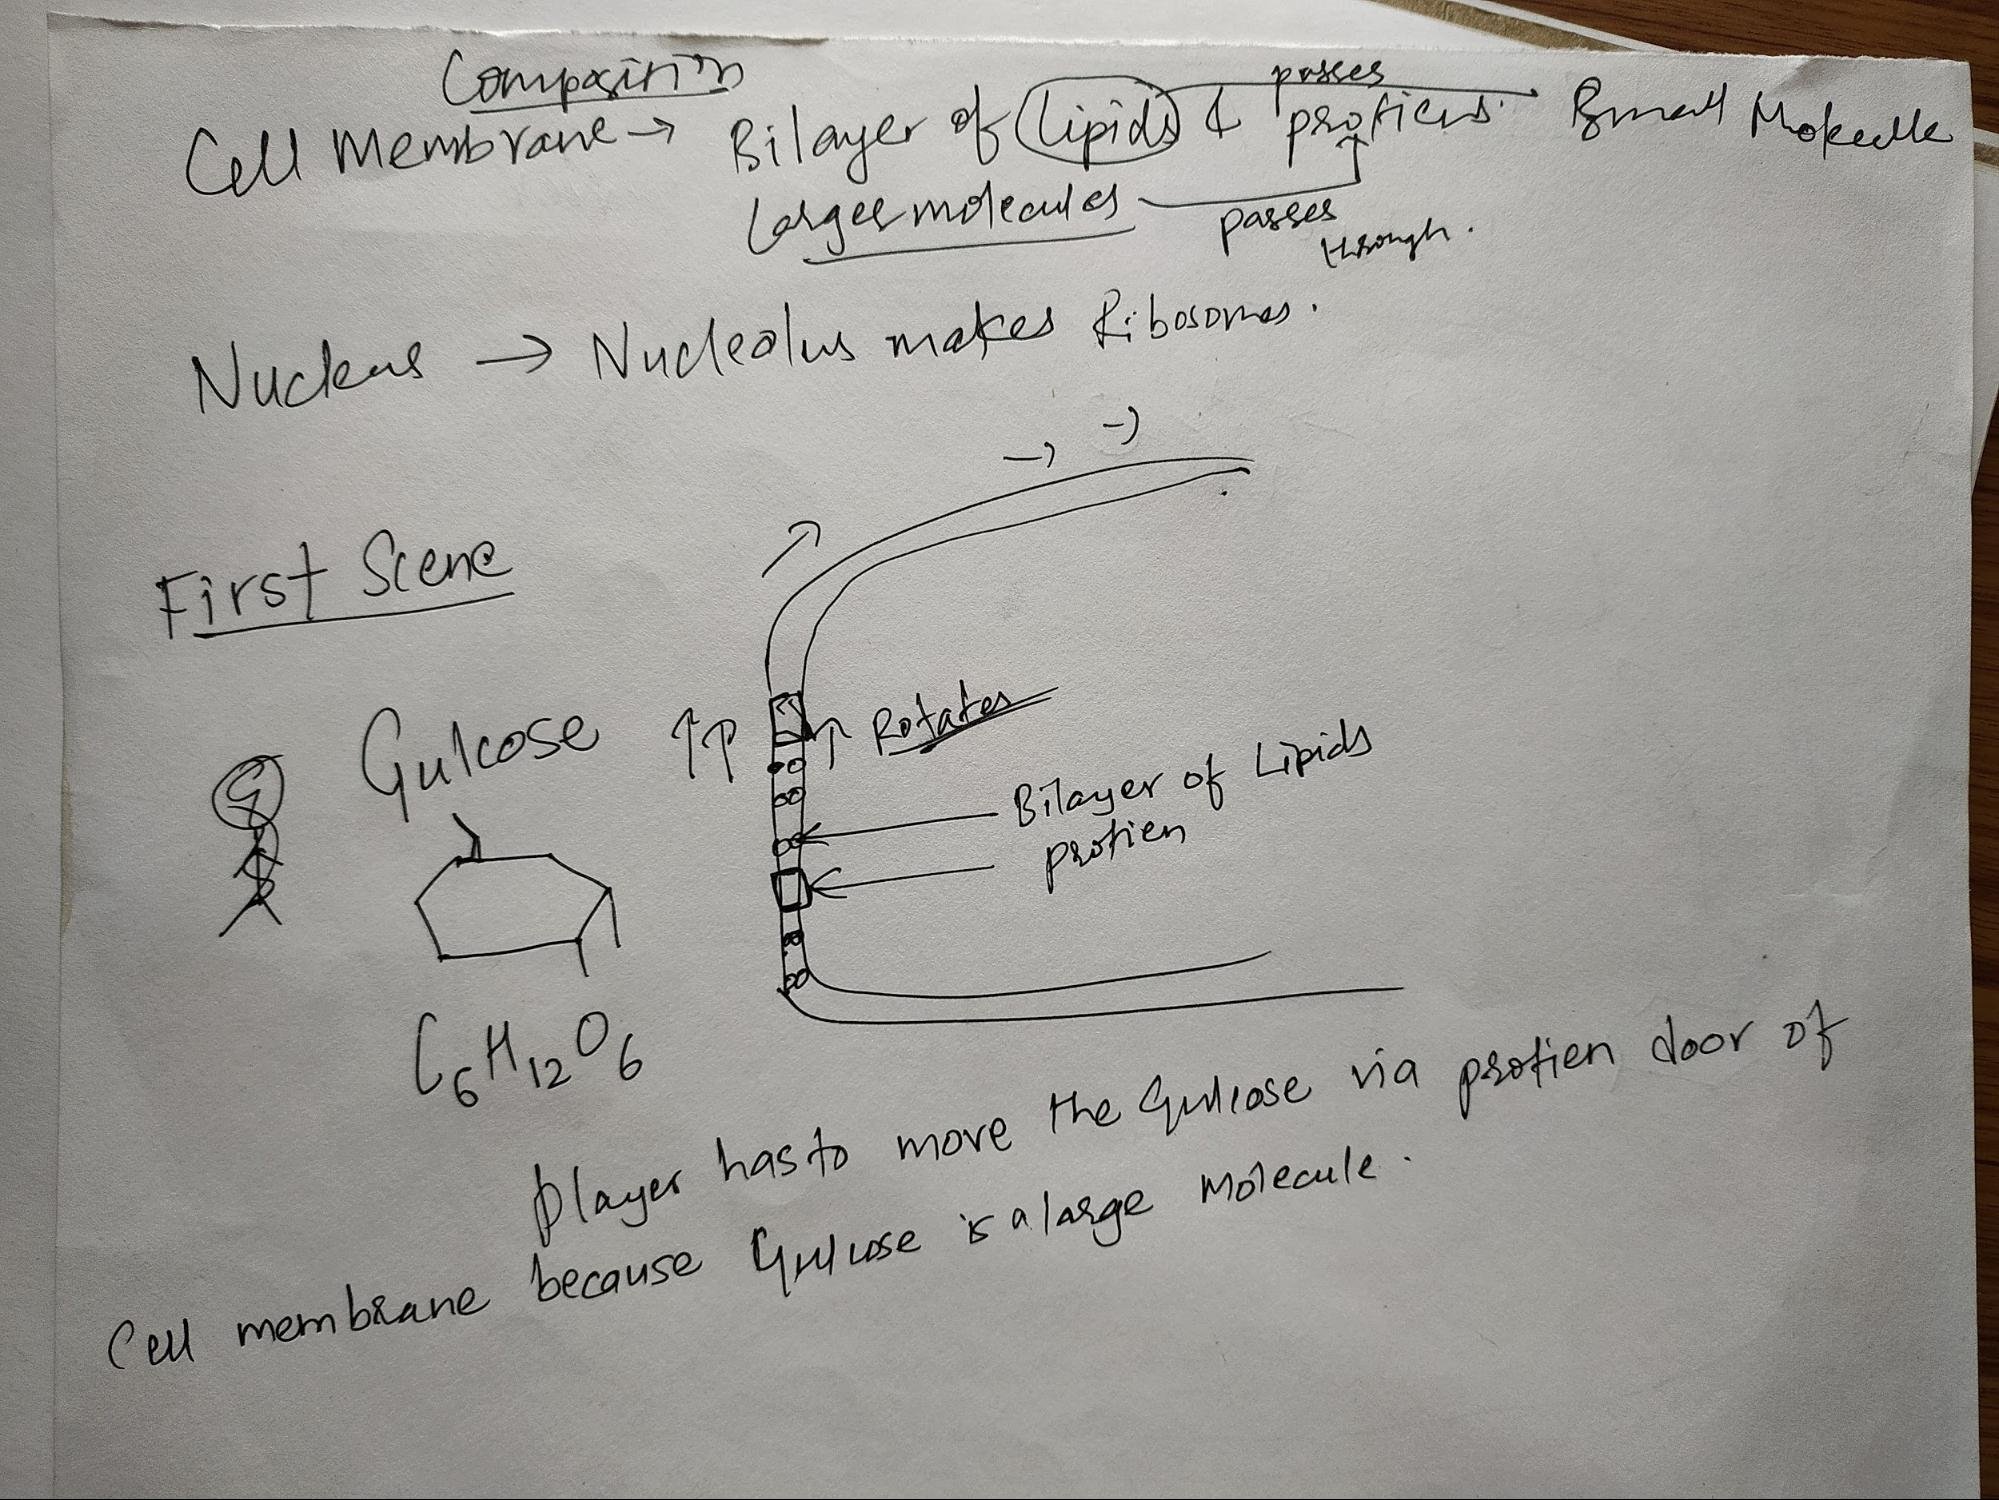 Composition
Cell Membrane → Bilayer of Lipids & protiens. Small Molecule
passes
Larger molecules passes through.
Nucleus → Nucleolus makes Ribosomes.
First Scene
Gulcose
G
Rotates
Bilayer of Lipids
protien
C6H12O6
player has to move the Gulcose via protien door of
Cell membrane because Gulcose is a large Molecule.